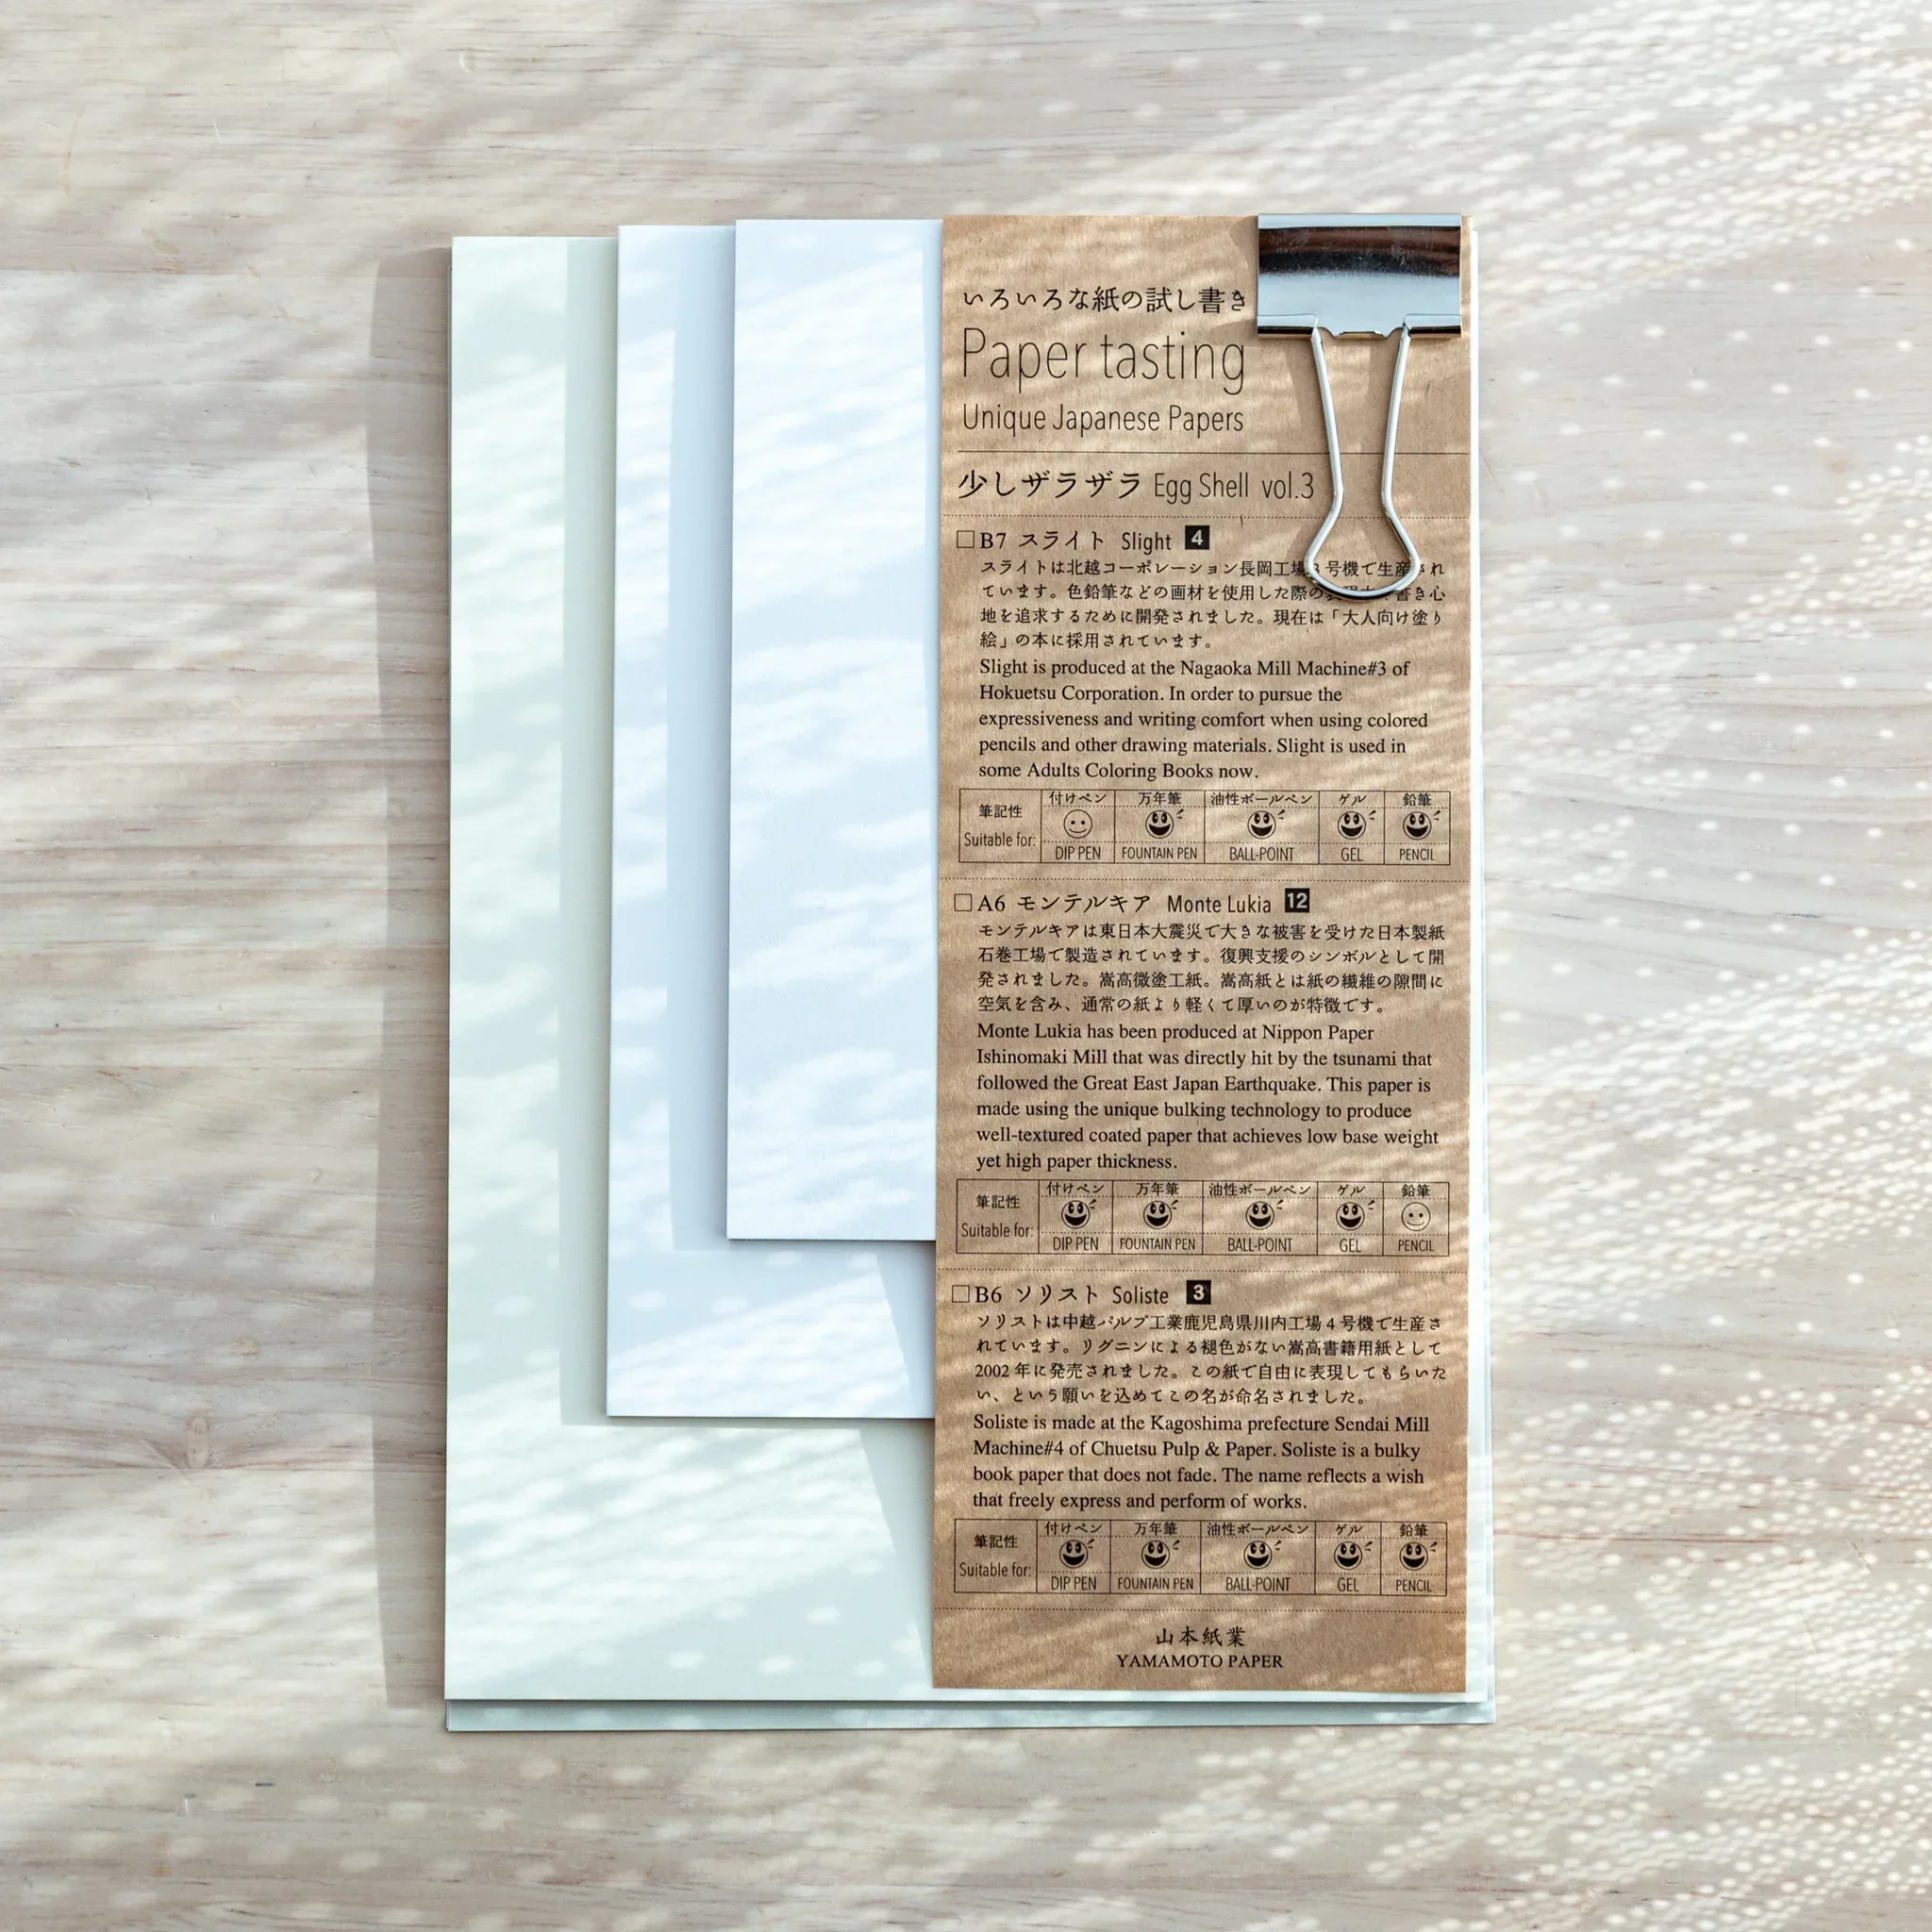 いろいろな紙の試し書き
Paper tasting
Unique Japanese Papers
少しザラザラ Egg Shell vol.3
□B7 スライト Slight 4
スライトは北越コーポレーション長岡工場3号機で生産され
ています。色鉛筆などの画材を使用した際の 書き心
地を追求するために開発されました。現在は「大人向け塗り
絵」の本に採用されています。
Slight is produced at the Nagaoka Mill Machine#3 of
Hokuetsu Corporation. In order to pursue the
expressiveness and writing comfort when using colored
pencils and other drawing materials. Slight is used in
some Adults Coloring Books now.
付けペン 万年筆 油性ボールペン ゲル 鉛筆
筆記性
Suitable for:
DIP PEN FOUNTAIN PEN BALL-POINT GEL PENCIL
□A6 モンテルキア Monte Lukia 12
モンテルキアは東日本大震災で大きな被害を受けた日本製紙
石巻工場で製造されています。復興支援のシンボルとして開
発されました。嵩高微塗工紙。嵩高紙とは紙の繊維の隙間に
空気を含み、通常の紙より軽くて厚いのが特徴です。
Monte Lukia has been produced at Nippon Paper
Ishinomaki Mill that was directly hit by the tsunami that
followed the Great East Japan Earthquake. This paper is
made using the unique bulking technology to produce
well-textured coated paper that achieves low base weight
yet high paper thickness.
付けペン 万年筆 油性ボールペン ゲル 鉛筆
筆記性
Suitable for:
DIP PEN FOUNTAIN PEN BALL-POINT GEL PENCIL
□B6 ソリスト Soliste 3
ソリストは中越パルプ工業鹿児島県川内工場4号機で生産さ
れています。リグニンによる褪色がない嵩高書籍用紙として
2002年に発売されました。この紙で自由に表現してもらいた
い、という願いを込めてこの名が命名されました。
Soliste is made at the Kagoshima prefecture Sendai Mill
Machine#4 of Chuetsu Pulp & Paper. Soliste is a bulky
book paper that does not fade. The name reflects a wish
that freely express and perform of works.
付けペン 万年筆 油性ボールペン ゲル 鉛筆
筆記性
Suitable for:
DIP PEN FOUNTAIN PEN BALL-POINT GEL PENCIL
山本紙業
YAMAMOTO PAPER